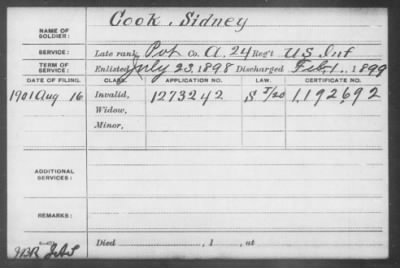 NAME OF SOLDIER: Cook, Sidney
SERVICE: Late rank Pvt Co. A, 24 Reg't U.S. Inf
TERM OF SERVICE: Enlisted July 23, 1898 Discharged Feb. 1, 1899
DATE OF FILING. CLASS. APPLICATION NO. LAW. CERTIFICATE NO.
1901 Aug 16 Invalid, 1273242 1,192,692
Widow,
Minor,
ADDITIONAL SERVICES:
REMARKS:
Died , 1 , at